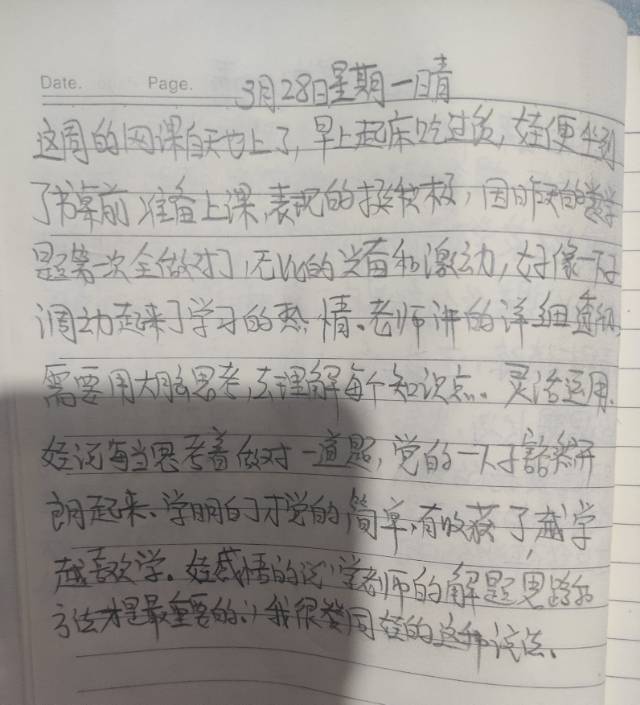 Date. Page.
3月28日星期一晴
这周的网课白天也上了,早上起床吃过饭,娃便坐到
了书桌前,准备上课,表现的挺积极,因昨天的数学
题第一次全做对了,无比的兴奋和激动,好像一下子
调动起来了学习的热情。老师讲的详细
需要用大脑思考,去理解每个知识点。灵活运用,
娃说每当思考着做对一道题,觉的一下子豁然开
朗起来、学明白了才觉的简单,有收获了,越学
越喜欢学。娃感悟的说"学老师的解题思路和
方法才是最重要的"我很赞同娃的这种说法、